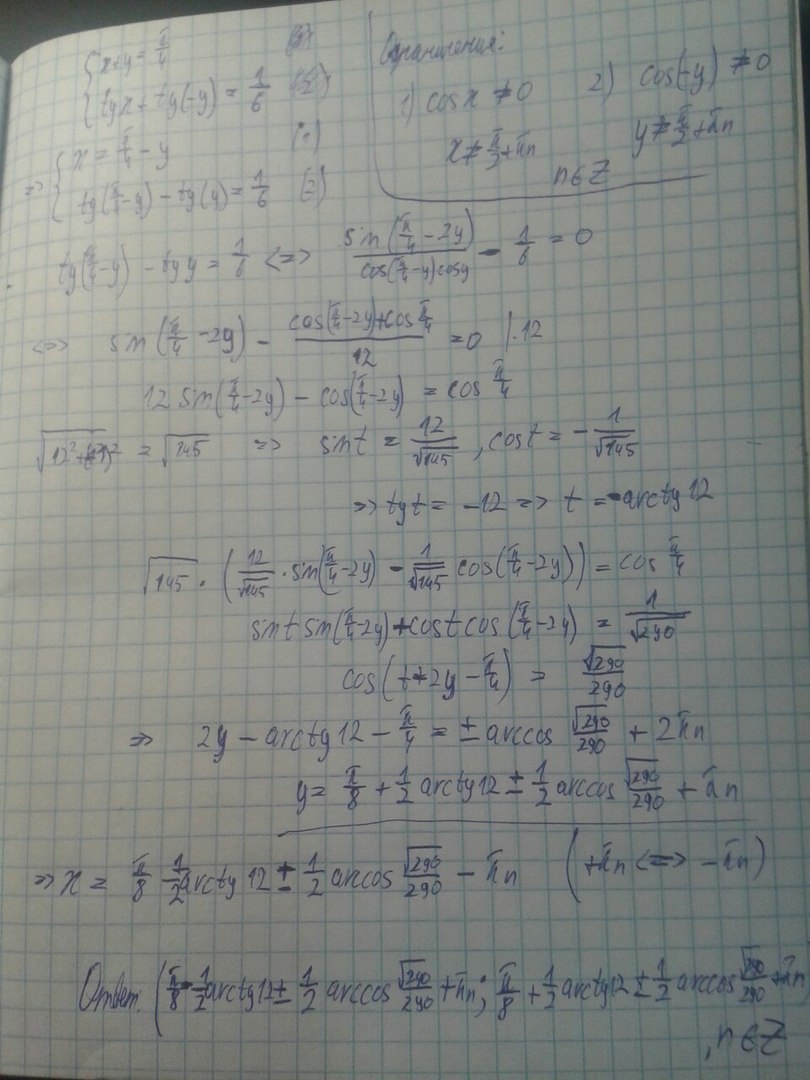 {x+y = π/4 (1)
{tgx + tg(-y) = 1/6 (2)
Ограничения:
1) cosx ≠ 0 2) cos(-y) ≠ 0
x ≠ π/2 + πn y ≠ π/2 + πn
n∈Z
=> {x = π/4 - y (1)
{tg(π/4 - y) - tg(y) = 1/6 (2)
tg(π/4 - y) - tgy = 1/6 <=> sin(π/4 - 2y)/(cos(π/4 - y)cosy) - 1/6 = 0
<=> sin(π/4 - 2y) - (cos(π/4 - 2y) + cos π/4)/12 = 0 |·12
12 sin(π/4 - 2y) - cos(π/4 - 2y) = cos π/4
√(12² + (-1)²) = √145 => sint = 12/√145, cost = -1/√145
=> tgt = -12 => t = -arctg12
√145 · (12/√145 · sin(π/4 - 2y) - 1/√145 cos(π/4 - 2y)) = cos π/4
sint sin(π/4 - 2y) + cost cos(π/4 - 2y) = 1/√290
cos(t + 2y - π/4) = √290/290
=> 2y - arctg12 - π/4 = ± arccos √290/290 + 2πn
y = π/8 + 1/2 arctg12 ± 1/2 arccos √290/290 + πn
=> x = π/8 - 1/2 arctg12 ± 1/2 arccos √290/290 - πn (+πn <=> -πn)
Ответ: (π/8 - 1/2 arctg12 ± 1/2 arccos √290/290 + πn; π/8 + 1/2 arctg12 ± 1/2 arccos √290/290 + πn)
, n∈Z